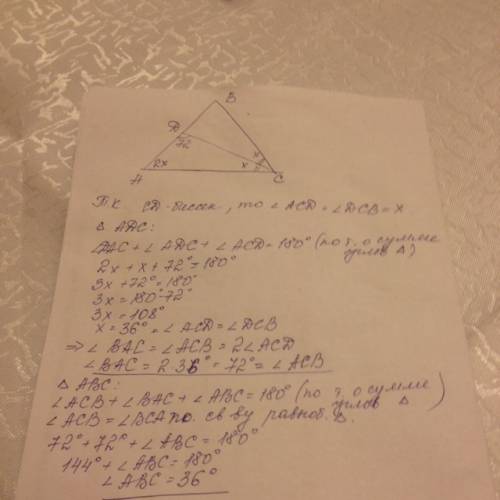 B
D
72
A
2x
x
x
C
Т.к. CD - биссек., то ∠ACD = ∠DCB = x
△ ADC:
∠DAC + ∠ADC + ∠ACD = 180° (по т. о сумме углов △)
2x + x + 72° = 180°
3x + 72° = 180°
3x = 180° - 72°
3x = 108°
x = 36° = ∠ACD = ∠DCB
⇒ ∠BAC = ∠ACB = 2∠ACD
∠BAC = 2·36° = 72° = ∠ACB
△ ABC:
∠ACB + ∠BAC + ∠ABC = 180° (по т. о сумме углов △)
∠ACB = ∠BCA по св ву равноб. △.
72° + 72° + ∠ABC = 180°
144° + ∠ABC = 180°
∠ABC = 36°